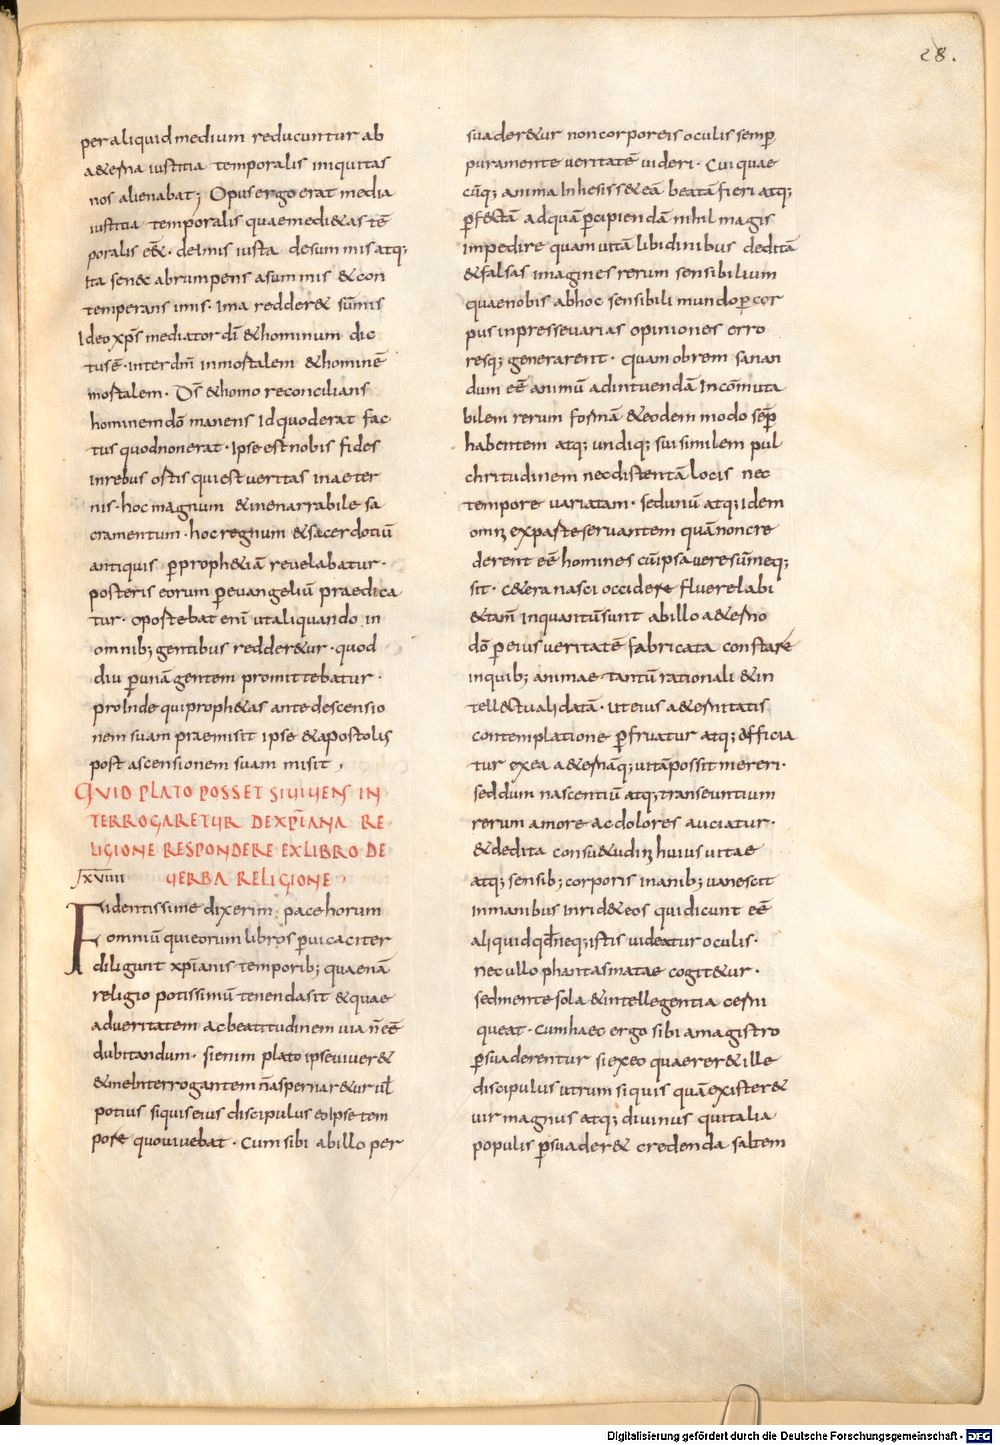 28.
per aliquid medium reducuntur ab
a&erna iustitia temporalis iniquitas
nos alienabat; Opus ergo erat media
iustitia temporalis quae medi&as tē
poralis eē&· de imis iusta de summis atq;
Ita sen& abrumpens a summis & con
temperans imis· Ima redder& sūmis
Ideo xp̄s mediator dī & hominum dic
tus ē· inter dm̄ inmortalem & hominē
mortalem· Ds̄ & homo reconcilians
hominem dō manens Id quod erat fac
tus quod non erat· Ipse est nobis fides
in rebus ortis qui est veritas in aeter
nis· hoc magnum & inenarrabile sa
cramentum· hoc regnum & sacerdotiū
antiquis p̄ proph&iā revelabatur·
posteris eorum p̄ evangeliū praedica
tur· oportebat enī ut aliquando in
omnib; gentibus redder&ur· quod
diu p̄ unā gentem promittebatur·
proInde qui proph&as ante descensio
nem suam praemisit ipse & apostolis
post ascensionem suam misit,
QUID PLATO POSSET SI VIVENS IN
TERROGARETUR DE XP̄IANA RE
LIGIONE RESPONDERE EX LIBRO DE
XVIIII VERBA RELIGIONE,
Fidentissime dixerim pace horum
omniū qui eorum libros p̄vicaciter
diligunt xp̄ianis temporib; quaenā
religio potissimū tenenda sit & quae
ad veritatem ac beatitudinem via n̄ eē
dubitandum· si enim plato ipse viver&
& me Interrogantem n̄ aspernar&ur vl̄
potius si quis eius discipulus eo Ipse tem
pore quo vivebat· Cum sibi ab illo per
suader&ur non corporeis oculis semp̄
pura mente veritatē videri· Cui quae
cūq; anima Inhesiss& eā beatā fieri atq;
p̄f&tā ad quā p̄cipiendā nihil magis
impedire quam vitā libidinibus deditā
& falsas imagines rerum sensibilium
quae nobis ab hoc sensibili mundo p̄ cor
pus inpresse varias opiniones erro
resq; generarent· quam obrem sanan
dum eē animū ad intuendā Incōmuta
bilem rerum formā & eodem modo sēp̄
habentem atq; undiq; sui similem pul
chritudinem nec distentā locis nec
tempore variatam· sed unū atq; Idem
omni ex parte servantem quā non cre
derent eē homines cū ipsa vere sūmeq;
sit· C&era nasci occidere fluere labi
& tam̄ Inquantū sunt ab illo a&erno
dō p̄ eius veritatē fabricata constare
in quib; animae tantū rationali & in
tell&tuali datā· ut eius a&ernitatis
contemplatione p̄fruatur atq; afficia
tur ex ea a&ernāq; vitā possit mereri·
sed dum nascentiū atq; transeuntium
rerum amore ac dolores auciatur·
& dedita consu&udini huius vitae
atq; sensib; corporis inanib; vanescit
in manibus Inrid& eos qui dicunt eē
aliquid qd̄ neq; istis videatur oculis·
nec ullo phantasmatae cogit&ur·
sed mente sola & intellegentia cerni
queat· Cum haec ergo sibi a magistro
p̄suaderentur si ex eo quaerer& ille
discipulus utrum si quis quā exister&
vir magnus atq; divinus qui talia
populis p̄suader& credenda saltem
Digitalisierung gefördert durch die Deutsche Forschungsgemeinschaft - DFG